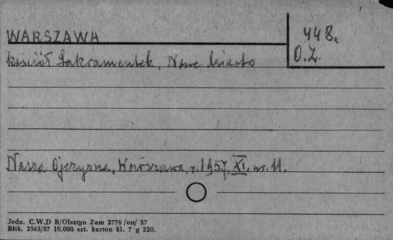 WARSZAWA
448.
O.Z.
kościół Sakramentek, Nowe Miasto
Nasza Ojczyzna, Warszawa, r. 1957, XI, nr. 11.
Jedn. C.W.D B/Olsztyn Zam 2776 /on/ 57
Bltk. 2563/57 10,000 szt. karton kl. 7 g 220.